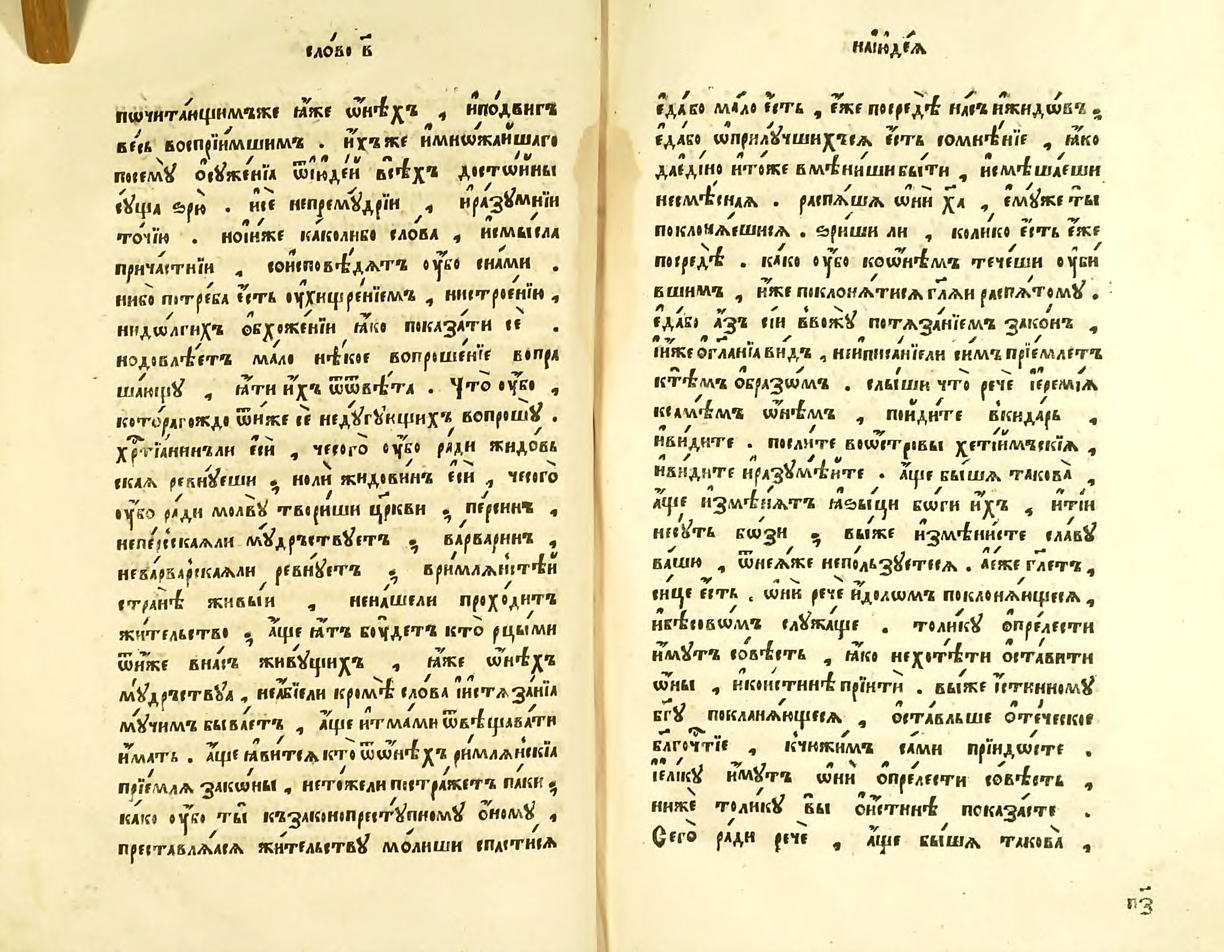 сло́во в҃
пѡчита́нщимъже ꙗ҆́же ѡ҆́нѣхъ , и҆по́двигъ
ве́сь воспрїи́мшимъ . и҆́хъже и҆мнѡжа́йшаго
посемꙋ̀ ѻ҆сꙋже́нїѧ ѿїюде́й всѣ́хъ досто́йны
сꙋ́ща ѕрю̀ . и҆се непремꙋ́дрїи , и҆разꙋ́мнїи
то́чїю . но҆и҆́же како́либо сло́ва , и҆смы́сла
прича́стнїи , соисповѣ́дѧтъ ᲂу҆́бо сна́ми .
нибо потре́ба є҆́сть ᲂу҆хищре́нїемъ , нистрое́нїю ,
нидѡ́лгихъ ѻ҆бхожде́нїи ꙗ҆́ко показа́ти сѐ .
нодовлѣ́етъ ма́ло нѣ́кое вопроше́нїе вопра
ша́ющꙋ , ꙗ҆́ти и҆́хъ ѿѿвѣ́та . Что̀ ᲂу҆́бо ,
кото́рагождо ѿни́же сѐ недꙋ́гꙋющихъ вопрошꙋ̀ .
хрⷭ҇тїа́нинъли є҆сѝ , чесого̀ ᲂу҆́бо ра́ди жидо́вь
скаѧ ревнꙋ́еши ; но́ли жидови́нъ є҆сѝ , чесого̀
ᲂу҆́бо ра́ди молвꙋ̀ твори́ши цр҃кви ; пе́рсинъ ,
непе́рсскаѧли мꙋ́дръствꙋетъ ; ва́рваринъ ,
нева́рварскаѧли ревнꙋ́етъ ; ври́млѧнстѣй
странѣ̀ живы́й , нена́шели прохо́дитъ
жи́тельство ; а҆́ще ꙗ҆́тъ бꙋ́детъ кто̀ рцы́ми
ѿни́же вна́съ живꙋ́щихъ , ꙗ҆́же ѡ҆́нѣхъ
мꙋ́дръствꙋа , неа҆́бїели кромѣ̀ сло́ва и҆истѧза́нїа
мꙋ́чимъ быва́етъ , а҆́ще и҆тма́ми ѿвѣщава́ти
и҆́мать . а҆́ще ꙗ҆ви́тсѧ кто̀ ѿѡ҆́нѣхъ римлѧ́нскїа
прїе́млѧ зако́ны , нето́жели постра́жетъ па́ки ;
ка́ко ᲂу҆́бо ты̀ къзаконопрестꙋ́пномꙋ ѻ҆́номꙋ ,
преставлѧ́ѧсѧ жи́тельствꙋ мо́лиши спасти́сѧ
наїюде́ѧ
є҆да́бо ма́ло є҆́сть , є҆́же посредѣ̀ на́съ и҆жидѡ́въ ;
є҆да́бо ѡ҆прилꙋ́чшихъсѧ є҆́сть сомнѣ́нїе , ꙗ҆́ко
дає҆ди́но и҆то́же вмѣни́шибы́ти , и҆смѣша́еши
несмѣ́снаѧ . распѧ́шѧ ѡ҆нѝ хⷭ҇а̀ , є҆мꙋ́же ты̀
поклонѧ́ешисѧ . ѕри́ши ли , коли́ко є҆́сть є҆́же
посредѣ̀ . ка́ко ᲂу҆́бо коѡ҆́нѣмъ тече́ши ᲂу҆би
вшимъ , и҆́же поклонѧ́тисѧ гл҃ѧи распѧ́томꙋ .
є҆да́бо а҆́зъ сїѝ ввожꙋ̀ потѧза́нїемъ зако́нъ ,
и҆и҆́же ѻ҆гл҃анїа ви́дъ , неи҆писа́нїели си́мъ прїе́млетъ
ктѣ́мъ ѻ҆́бразѡмъ . слы́ши что̀ речѐ і҆еремі́ѧ
ксамѣ́мъ ѡ҆́нѣмъ , пои҆ди́те вкида́рь ,
и҆ви́дите . посли́те воѻ҆́стровы хетїи́мъскїѧ ,
и҆ви́дите и҆разꙋмѣ́йте . а҆́ще бы́шѧ такова̀ ,
а҆́ще и҆змѣ́нѧтъ ꙗ҆ѕы́ци бо́ги и҆́хъ , и҆ті́и
несꙋ́ть бо́зи ; вы́же и҆змѣни́сте сла́вꙋ
ва́шю , ѿнеѧ́же непо́льзꙋетесѧ . а҆е́же гл҃етъ ,
си́це є҆́сть . ѡ҆нѝ речѐ и҆́долѡмъ поклонѧ́ющесѧ ,
и҆бѣсовѡ́мъ слꙋ́жаще . толи́кꙋ ѻ҆пре́лести
и҆́мꙋтъ со́вѣсть , ꙗ҆́ко нехотѣ́ти ѻ҆ста́вити
ѡ҆́ны , и҆кои҆́стинѣ прїитѝ . вы́же и҆́стинномꙋ
бг҃ꙋ покланѧ́ющесѧ , ѻ҆ста́вльше ѻ҆те́ческое
бл҃гочⷭ҇тїе , кчюжи́мъ са́ми прїидо́сте .
и҆є҆ли́кꙋ и҆́мꙋтъ ѡ҆нѝ ѻ҆пре́лести со́вѣсть ,
нижѐ толи́кꙋ вы̀ ѻ҆и҆́стинѣ показа́сте .
Сего̀ ра́ди речѐ , а҆́ще бы́шѧ такова̀ ,
п҃з